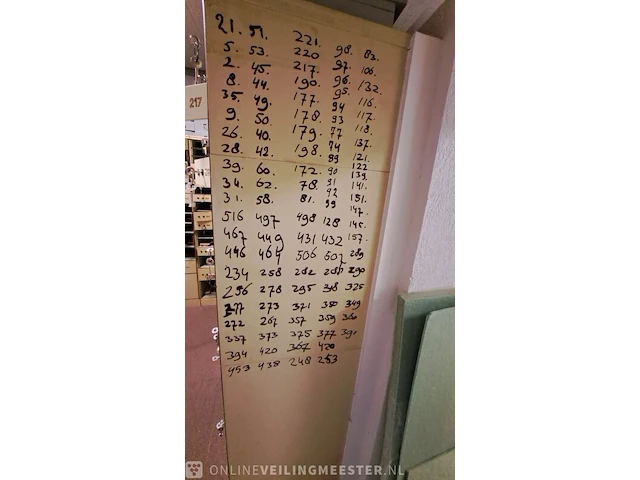 21. 51. 221. 98. 83.
5. 53. 220 97. 106.
2. 45. 217. 96. 132.
8. 44. 190. 95. 116.
35. 49. 177. 94 117.
9. 50. 178. 93 118.
26. 40. 179. 77 137.
28. 42. 198. 74 121.
89 122
39. 60. 172. 90 139.
34. 62. 78. 91 141.
31. 58. 81. 92 151.
99 147.
516 497 498 128 145.
467 449 431 432 157.
446 464 506 507 289
234 258 282 290
256 278 295 318 325
273 371 350 349
272 267 357 359 360
337 373 375 377 391
394 420 367 420
453 438 248 253
217
ONLINEVEILINGMEESTER.NL